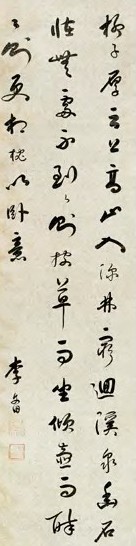 柳子厚云上高山入深林窮迴溪幽泉怪石
無遠不到到則披草而坐傾壺而醉
醉則更相枕以卧意
李